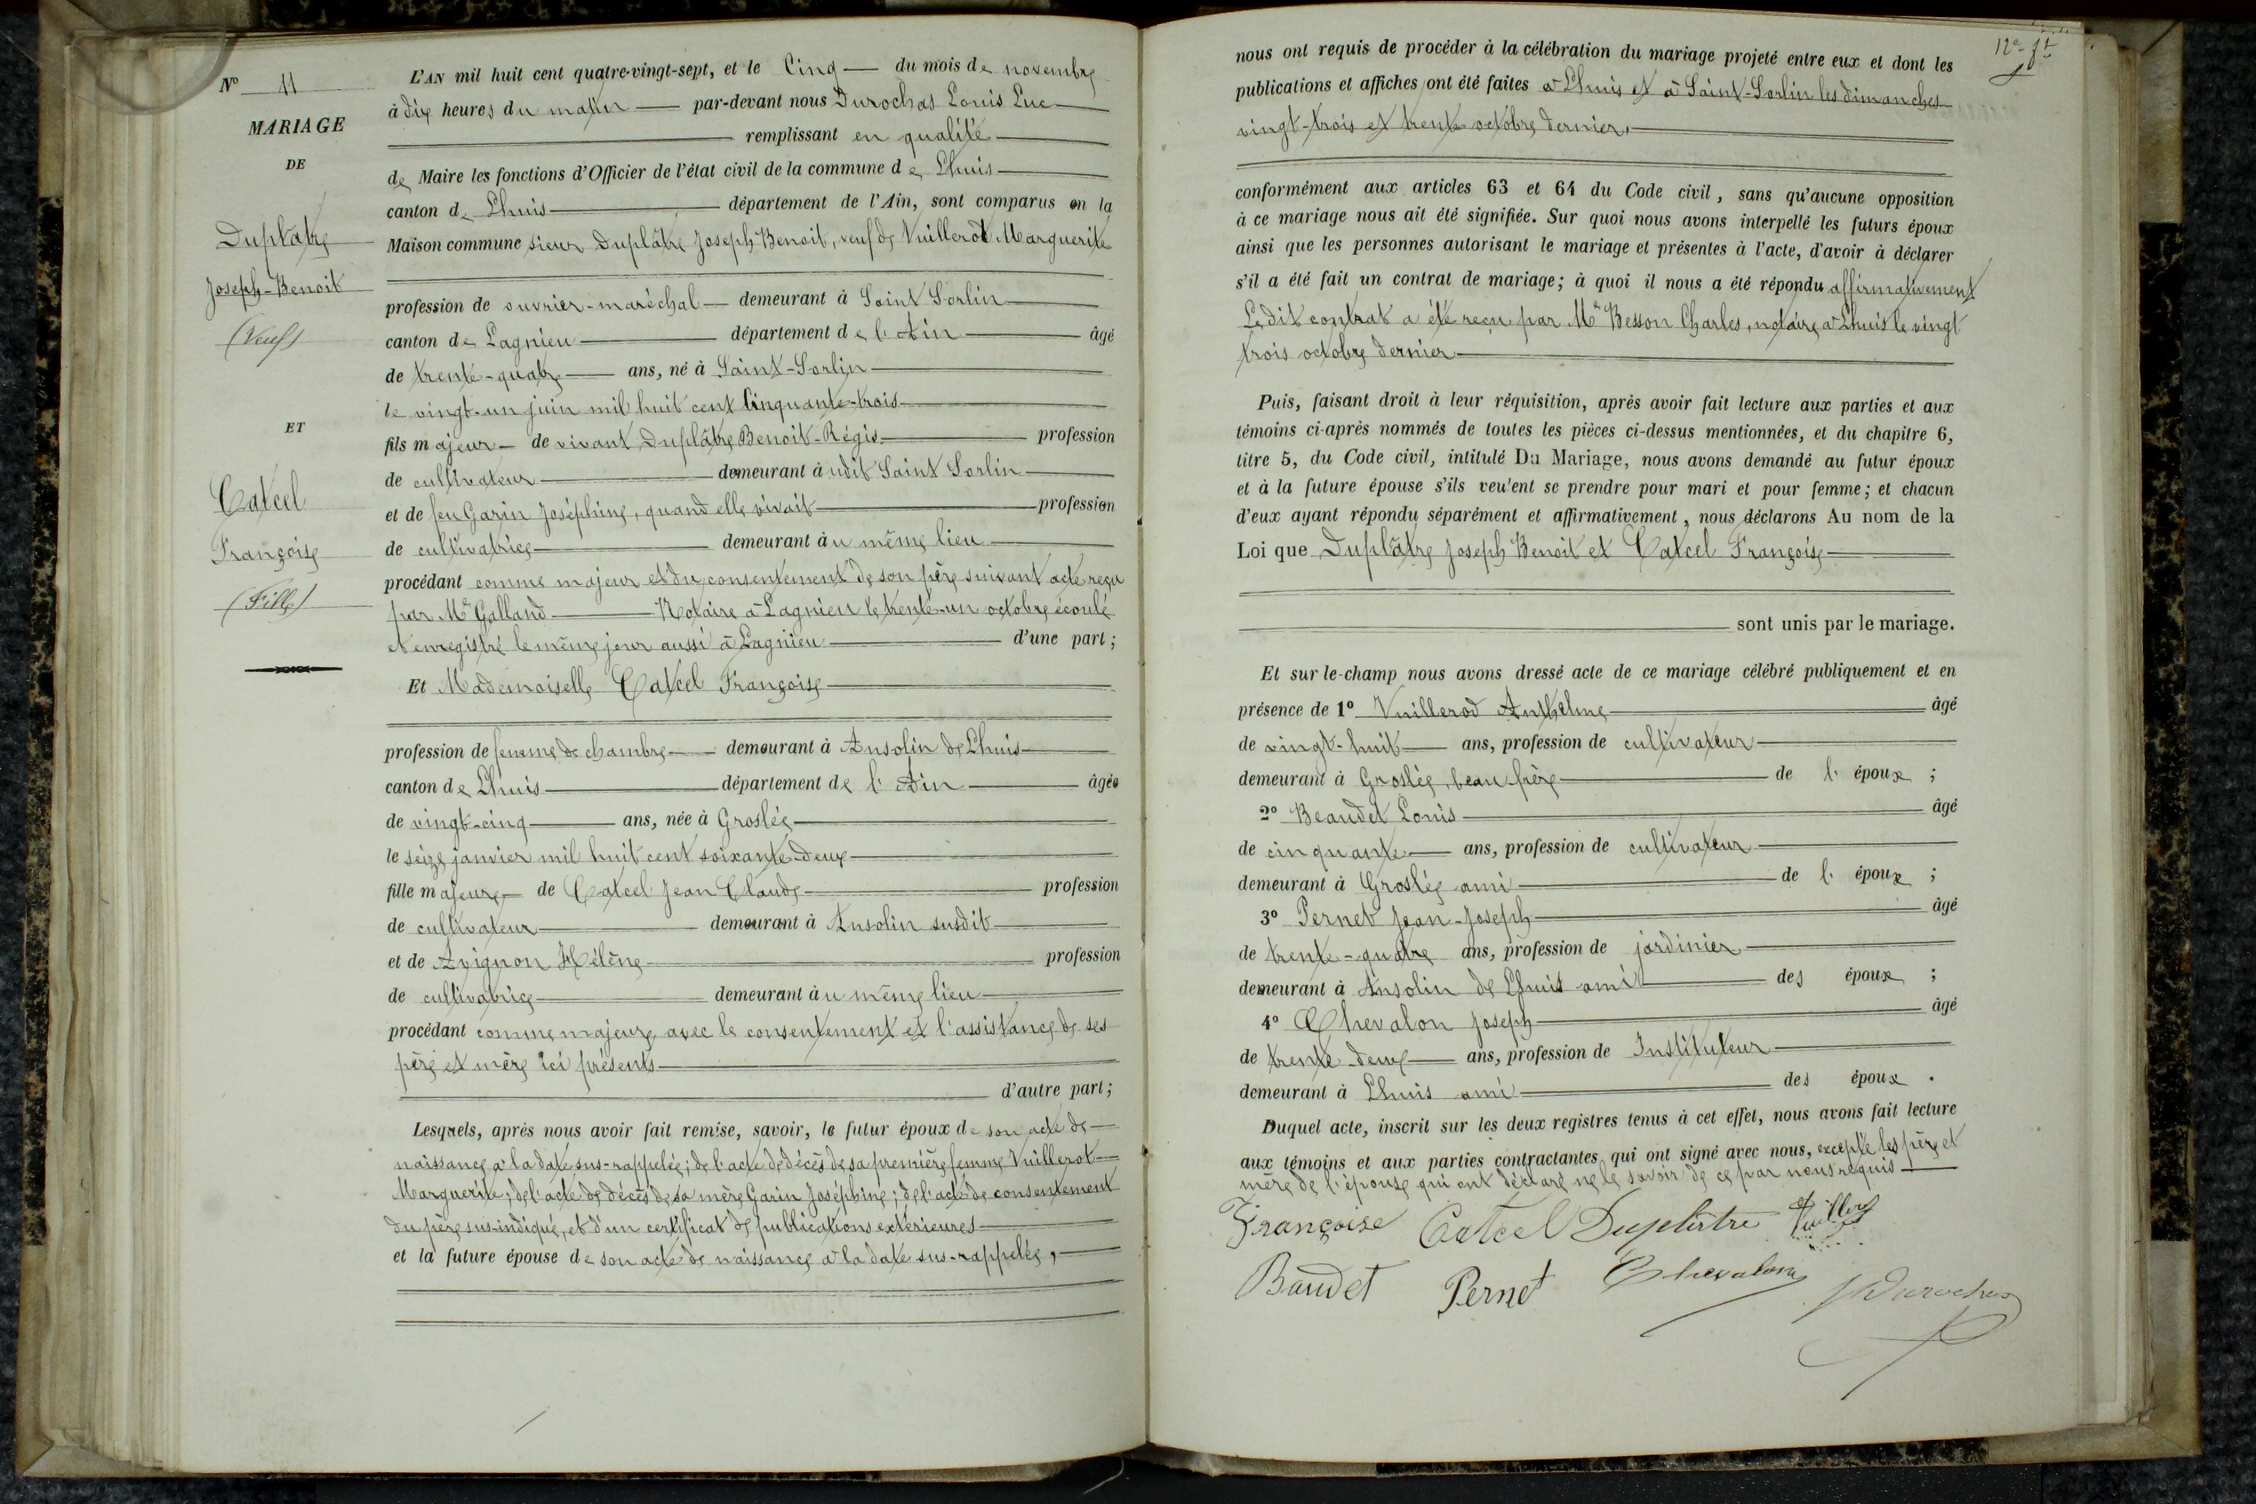 N° 11
MARIAGE
DE
Duplatre
Joseph-Benoit
(Veuf)
ET
Catcel
Françoise
(Fille)
L'AN mil huit cent quatre-vingt-sept, et le Cinq du mois de novembre
à dix heures du matin par-devant nous Durochas Louis Luc
remplissant en qualité
de Maire les fonctions d'Officier de l'état civil de la commune de Lhuis
canton de Lhuis département de l'Ain, sont comparus en la
Maison commune sieur Duplâtre Joseph Benoit, veuf de Vuillerod Marguerite
profession de ouvrier-maréchal demeurant à Saint Sorlin
canton de Lagnieu département de l'Ain âgé
de trente-quatre ans, né à Saint-Sorlin
le vingt-un juin mil huit cent cinquante-trois
fils majeur de vivant Duplâtre Benoit-Régis profession
de cultivateur demeurant à udit Saint Sorlin
et de feu Garin Joséphine, quand elle vivait profession
de cultivatrice demeurant àu même lieu
procédant comme majeur et du consentement de son père suivant acte reçu
par Me Galland Notaire à Lagnieu le trente-un octobre écoulé
et enregistré le même jour aussi à Lagnieu d'une part;
Et Mademoiselle Catcel Françoise
profession de femme de chambre demeurant à Ansolin de Lhuis
canton de Lhuis département de l'Ain âgée
de vingt-cinq ans, née à Groslée
le seize janvier mil huit cent soixante-deux
fille majeure de Catcel Jean Claude profession
de cultivateur demeurant à Ansolin susdit
et de Avignon Hélène profession
de cultivatrice demeurant àu même lieu
procédant comme majeure, avec le consentement et l'assistance de ses
père et mère ici présents
d'autre part;
Lesquels, après nous avoir fait remise, savoir, le futur époux de son acte de
naissance à la date sus-rappelée; de l'acte de décès de sa première femme Vuillerot
Marguerite; de l'acte de décès de sa mère Garin Joséphine; de l'acte de consentement
du père sus-indiqué, et d'un certificat de publications extérieures
et la future épouse de son acte de naissance à la date sus-rappelée,
12e ft
nous ont requis de procéder à la célébration du mariage projeté entre eux et dont les
publications et affiches ont été faites à Lhuis et à Saint-Sorlin les dimanches
vingt-trois et trente octobre dernier.
conformément aux articles 63 et 64 du Code civil, sans qu'aucune opposition
à ce mariage nous ait été signifiée. Sur quoi nous avons interpellé les futurs époux
ainsi que les personnes autorisant le mariage et présentes à l'acte, d'avoir à déclarer
s'il a été fait un contrat de mariage; à quoi il nous a été répondu affirmativement
Le dit contrat a été reçu par Me Besson Charles, notaire à Lhuis le vingt
trois octobre dernier
Puis, faisant droit à leur réquisition, après avoir fait lecture aux parties et aux
témoins ci-après nommés de toutes les pièces ci-dessus mentionnées, et du chapitre 6,
titre 5, du Code civil, intitulé Du Mariage, nous avons demandé au futur époux
et à la future épouse s'ils veulent se prendre pour mari et pour femme; et chacun
d'eux ayant répondu séparément et affirmativement, nous déclarons Au nom de la
Loi que Duplâtre Joseph Benoit et Catcel Françoise
sont unis par le mariage.
Et sur-le-champ nous avons dressé acte de ce mariage célébré publiquement et en
présence de 1° Vuillerod Anthelme âgé
de vingt-huit ans, profession de cultivateur
demeurant à Groslée, beau-frère de l'époux;
2° Beaudet Louis âgé
de cinquante ans, profession de cultivateur
demeurant à Groslée ami de l'époux;
3° Pernet Jean-Joseph âgé
de trente-quatre ans, profession de jardinier
demeurant à Ansolin de Lhuis ami des époux;
4° Chevalon Joseph âgé
de trente-deux ans, profession de Instituteur
demeurant à Lhuis ami des époux.
Duquel acte, inscrit sur les deux registres tenus à cet effet, nous avons fait lecture
aux témoins et aux parties contractantes qui ont signé avec nous, excepté les père et
mère de l'épouse qui ont déclaré ne le savoir de ce par nous requis
Françoise Catcel Duplâtre
Baudet Pernet Chevalon Durochas